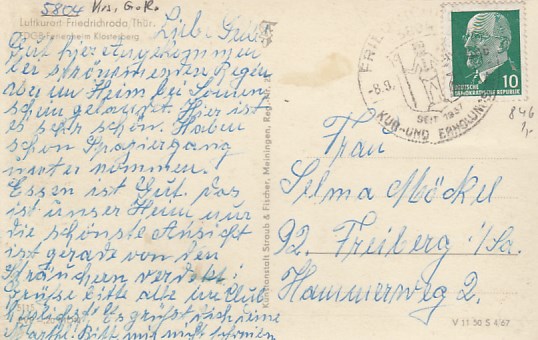 5804 Krs. Goth.
Luftkurort Friedrichroda/Thür.
FDGB-Ferienheim Klostersberg
Gut hier angekommen
bei strömenden Regen
aber im Heim bei Sonnen
schein gelandet. Hier ist
es sehr schön. Haben
schon Spaziergang
unter nommen.
Essen ist Gut. Das
ist unser Heim nur
die schönste Ansicht
ist gerade von den
Sträuchern verdekt!
Grüße bitte alle
Es grüßt dich eine
Bitte mir nicht
Kunstanstalt Straub & Fischer, Meiningen
-8.9.
SEIT 1837
KUR- UND ERHOLUNGS
10
DEUTSCHE DEMOKRATISCHE REPUBLIK
846
1,-
Frau
Selma Möckel
92. Freiberg i/Sa.
Hammerweg 2.
V 11 50 S 4/67